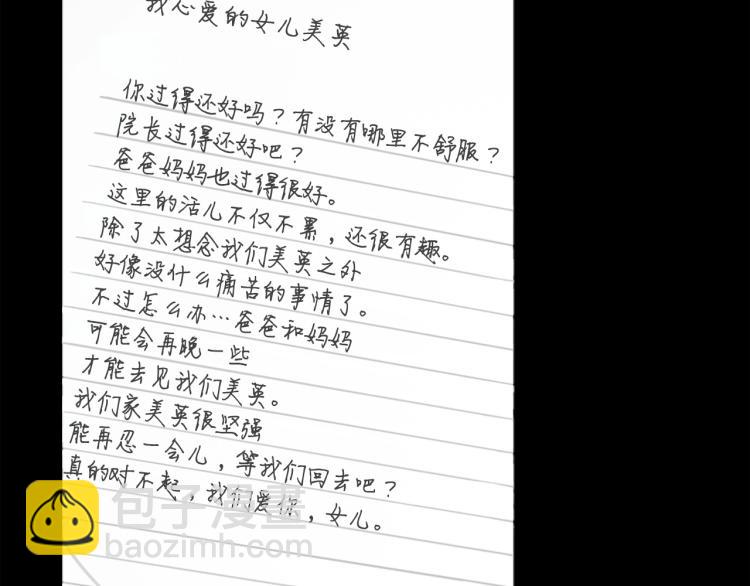 我心爱的女儿美英
你过得还好吗？有没有哪里不舒服？
院长过得还好吧？
爸爸妈妈也过得很好。
这里的活儿不仅不累，还很有趣。
除了太想念我们美英之外
好像没什么痛苦的事情了。
不过怎么办…爸爸和妈妈
可能会再晚一些
才能去见我们美英。
我们家美英很坚强
能再忍一会儿，等我们回去吧？
真的对不起，我们爱你，女儿。
包子漫畫
baozimh.com